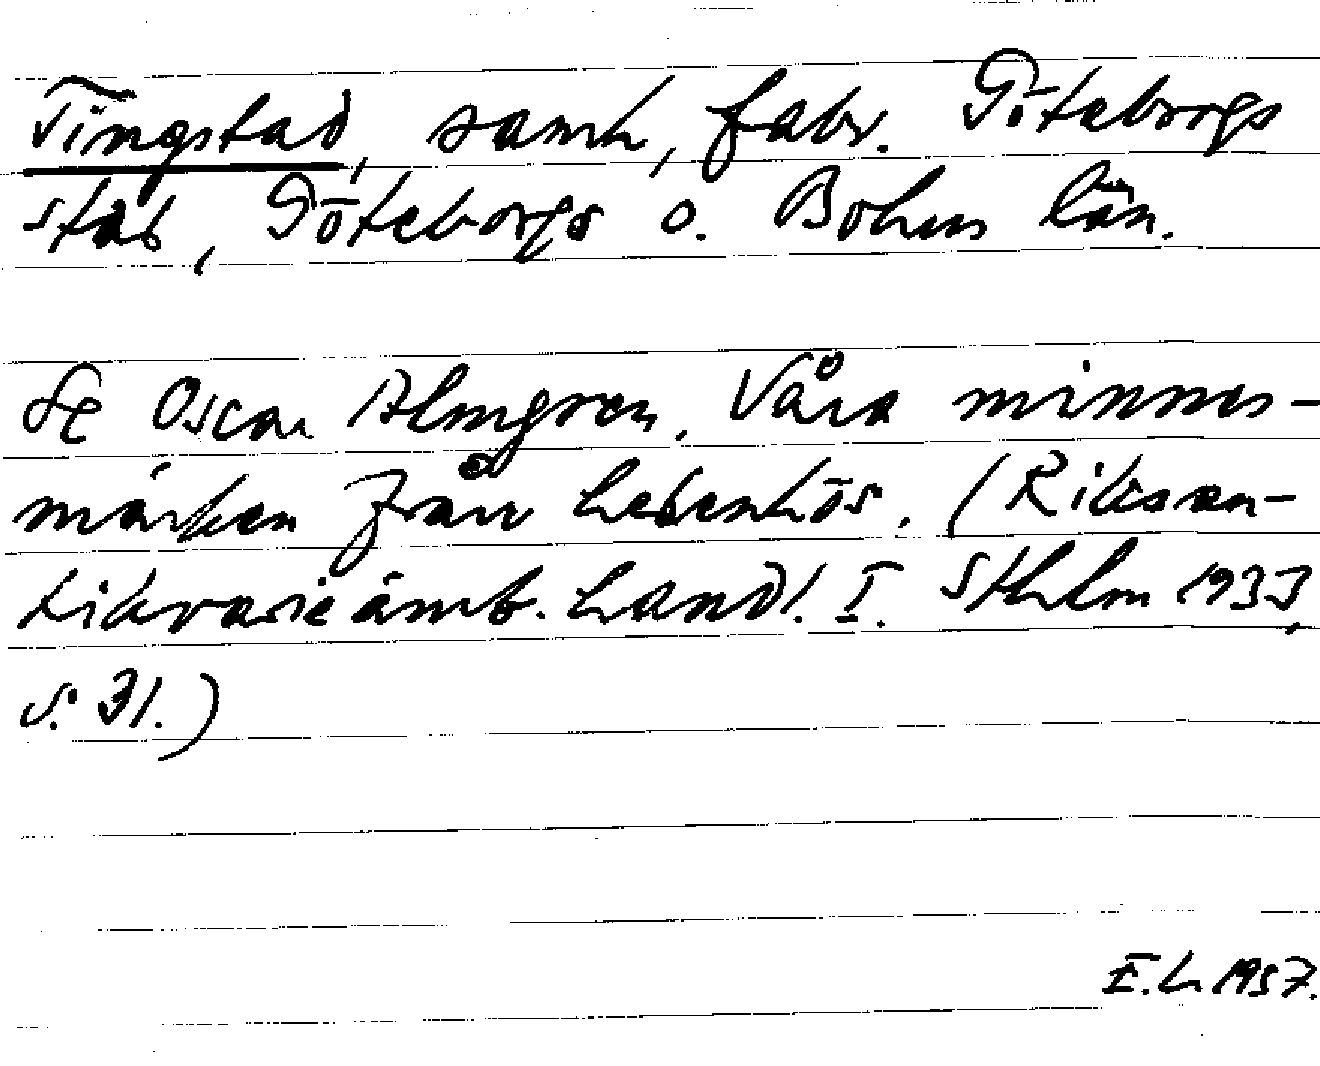 Tingstad, samh, fabr. Göteborgs
stad, Göteborgs o. Bohus län.
Se Oscar Almgren, Våra minnes-
märken från hedenhös. (Riksan-
tikvarieämb. handl. I. Sthlm 1933,
s. 31.)
E.h 1957.